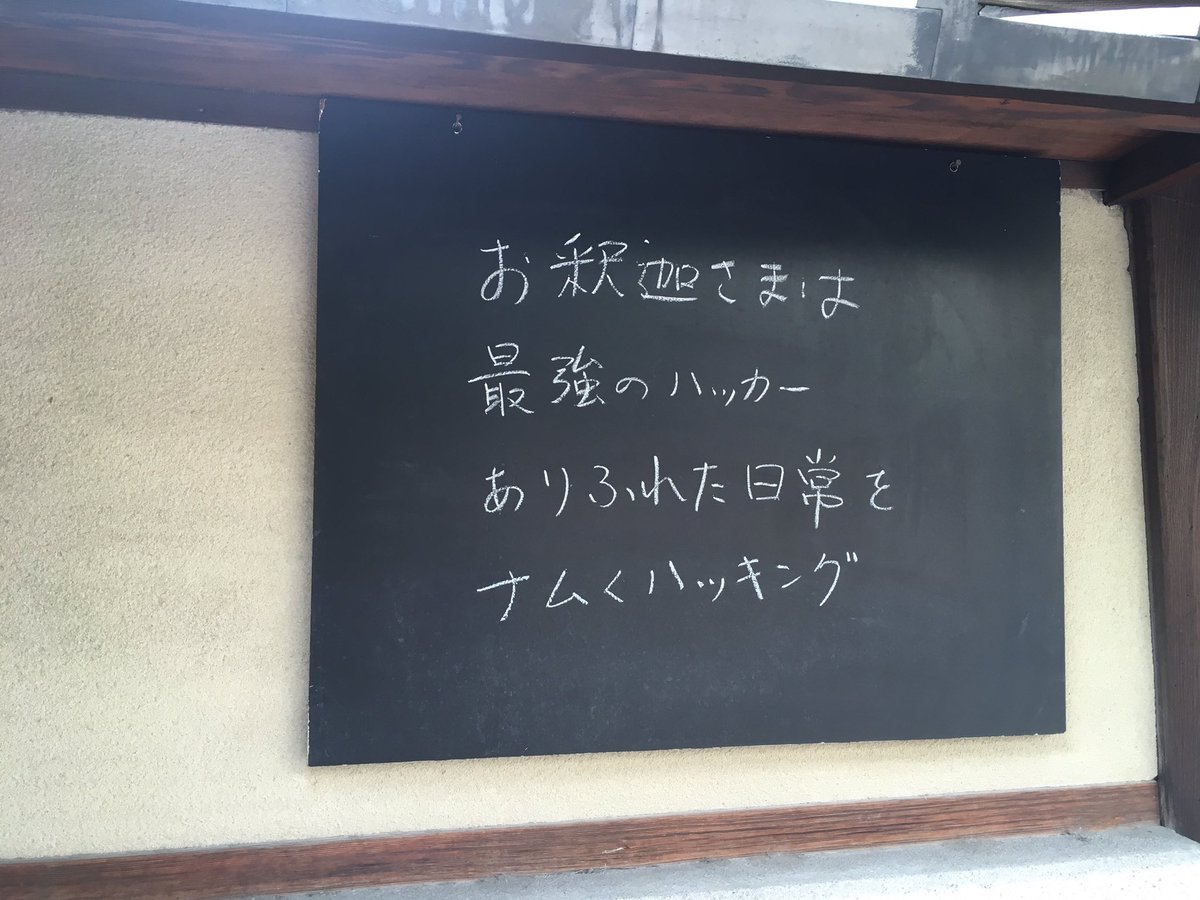 お釈迦さまは
最強のハッカー
ありふれた日常を
ナムくハッキング